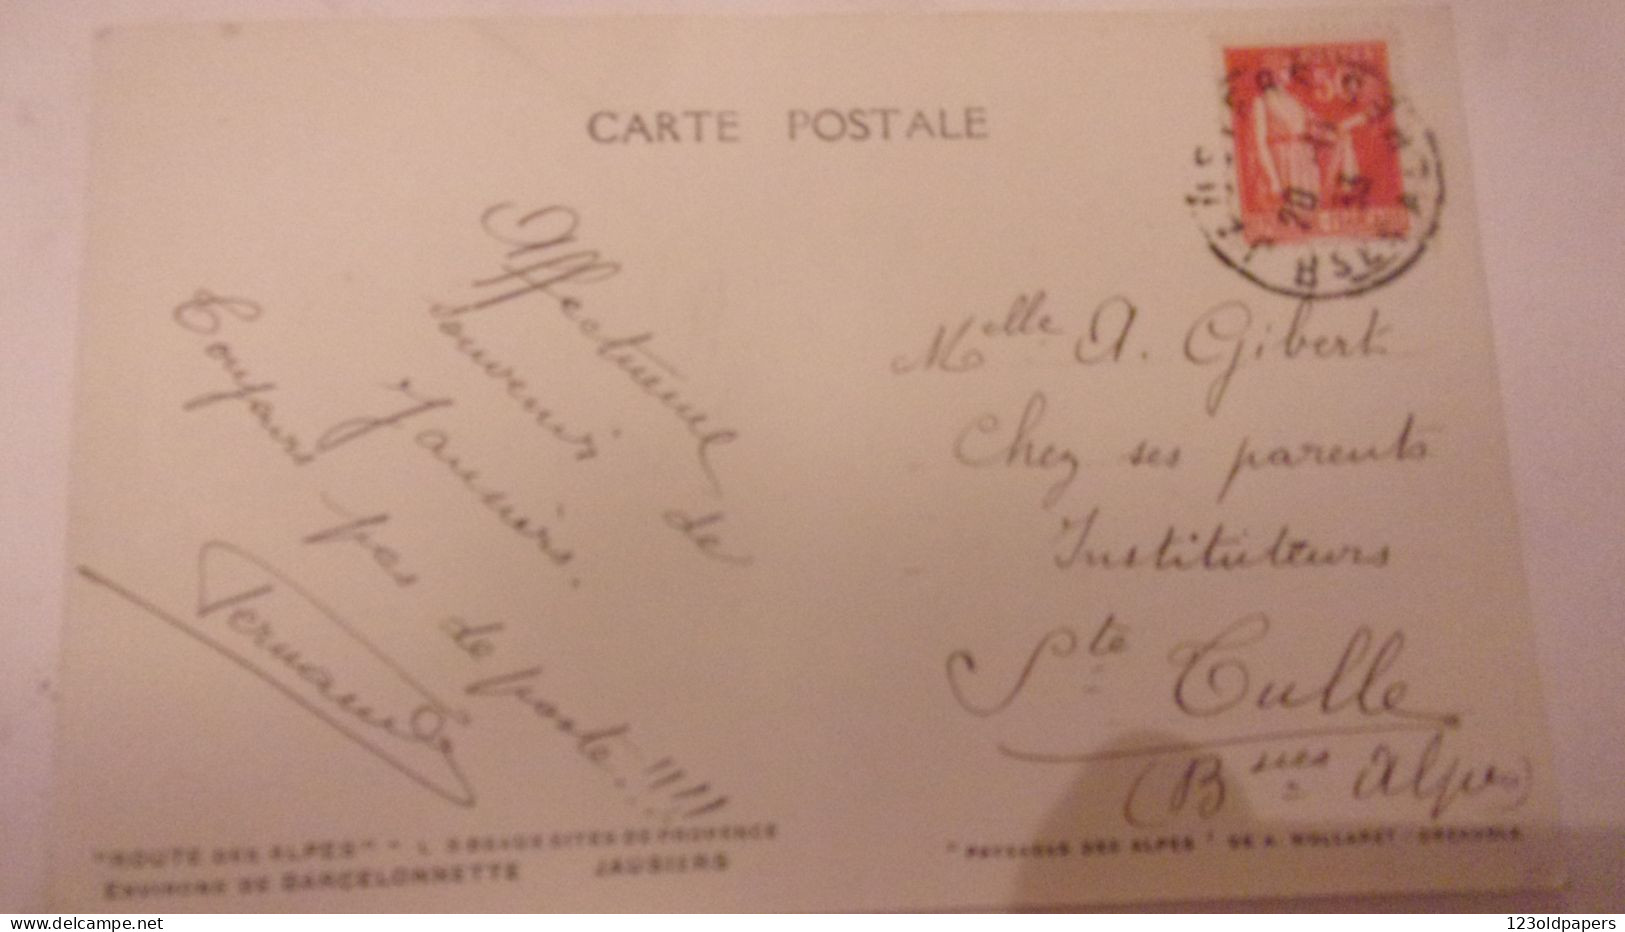 CARTE POSTALE
50
20 11
Affectueux
souvenir de
Jausiers.
Toujours pas de poste!!!!!
Fernande
Melle A. Gibert
Chez ses parents
Instituteurs
Ste Tulle
(Bsses Alpes)
"ROUTE DES ALPES" - L BEAUX SITES DE PROVENCE
ENVIRONS DE BARCELONNETTE JAUSIERS
"PAYSAGES DES ALPES" DE A. MOLLARET - GRENOBLE
123oldpapers